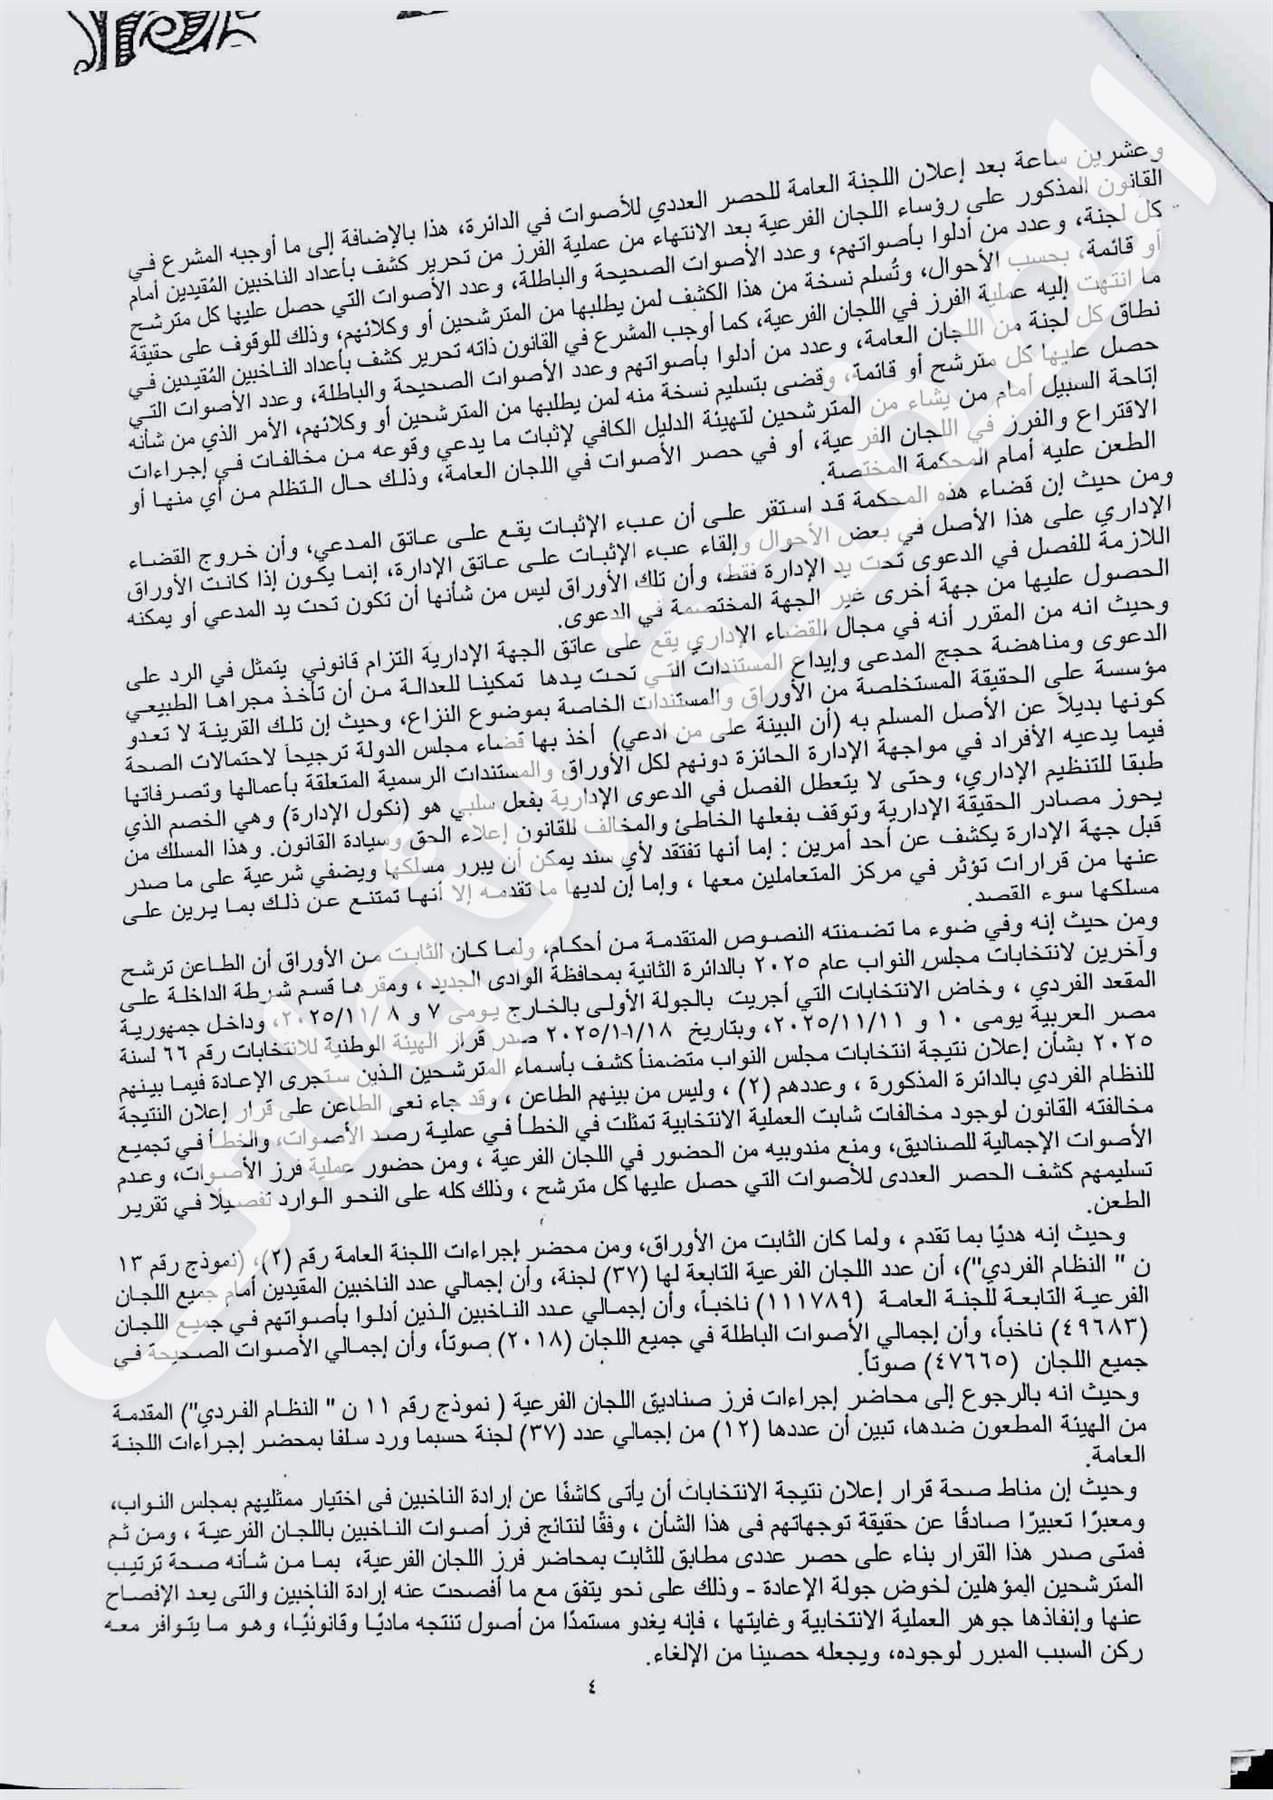 وعشرين ساعة بعد إعلان اللجنة العامة للحصر العددي للأصوات في الدائرة، هذا بالإضافة إلى ما أوجبه المشرع في
القانون المذكور على رؤساء اللجان الفرعية بعد الانتهاء من عملية الفرز من تحرير كشف بأعداد الناخبين المُقيدين أمام
كل لجنة، وعدد من أدلوا بأصواتهم، وعدد الأصوات الصحيحة والباطلة، وعدد الأصوات التي حصل عليها كل مترشح
أو قائمة، بحسب الأحوال، وتُسلم نسخة من هذا الكشف لمن يطلبها من المترشحين أو وكلائهم، وذلك للوقوف على حقيقة
ما انتهت إليه عملية الفرز في اللجان الفرعية، كما أوجب المشرع في القانون ذاته تحرير كشف بأعداد الناخبين المُقيدين في
نطاق كل لجنة من اللجان العامة، وعدد من أدلوا بأصواتهم وعدد الأصوات الصحيحة والباطلة، وعدد الأصوات التي
حصل عليها كل مترشح أو قائمة، وقضى بتسليم نسخة منه لمن يطلبها من المترشحين أو وكلائهم، الأمر الذي من شأنه
إتاحة السبيل أمام من يشاء من المترشحين لتهيئة الدليل الكافي لإثبات ما يدعي وقوعه من مخالفات في إجراءات
الاقتراع والفرز في اللجان الفرعية، أو في حصر الأصوات في اللجان العامة، وذلك حال التظلم من أي منها أو
الطعن عليه أمام المحكمة المختصة.
ومن حيث إن قضاء هذه المحكمة قد استقر على أن عبء الإثبات يقع على عاتق المدعي، وأن خروج القضاء
الإداري على هذا الأصل في بعض الأحوال وإلقاء عبء الإثبات على عاتق الإدارة، إنما يكون إذا كانت الأوراق
اللازمة للفصل في الدعوى تحت يد الإدارة فقط، وأن تلك الأوراق ليس من شأنها أن تكون تحت يد المدعي أو يمكنه
الحصول عليها من جهة أخرى غير الجهة المختصمة في الدعوى.
وحيث انه من المقرر أنه في مجال القضاء الإداري يقع على عاتق الجهة الإدارية التزام قانوني يتمثل في الرد على
الدعوى ومناهضة حجج المدعى وإيداع المستندات التي تحت يدها تمكينا للعدالة من أن تأخذ مجراها الطبيعي
مؤسسة على الحقيقة المستخلصة من الأوراق والمستندات الخاصة بموضوع النزاع، وحيث إن تلك القرينة لا تعدو
كونها بديلاً عن الأصل المسلم به (أن البينة على من ادعي) أخذ بها قضاء مجلس الدولة ترجيحاً لاحتمالات الصحة
فيما يدعيه الأفراد في مواجهة الإدارة الحائزة دونهم لكل الأوراق والمستندات الرسمية المتعلقة بأعمالها وتصرفاتها
طبقا للتنظيم الإداري، وحتى لا يتعطل الفصل في الدعوى الإدارية بفعل سلبي هو (نكول الإدارة) وهي الخصم الذي
يحوز مصادر الحقيقة الإدارية وتوقف بفعلها الخاطئ والمخالف للقانون إعلاء الحق وسيادة القانون. وهذا المسلك من
قبل جهة الإدارة يكشف عن أحد أمرين : إما أنها تفتقد لأي سند يمكن أن يبرر مسلكها ويضفي شرعية على ما صدر
عنها من قرارات تؤثر في مركز المتعاملين معها ، وإما إن لديها ما تقدمه إلا أنها تمتنع عن ذلك بما يرين على
مسلكها سوء القصد.
ومن حيث إنه وفي ضوء ما تضمنته النصوص المتقدمة من أحكام، ولما كان الثابت من الأوراق أن الطاعن ترشح
وآخرين لانتخابات مجلس النواب عام ٢٠٢٥ بالدائرة الثانية بمحافظة الوادى الجديد ، ومقرها قسم شرطة الداخلة على
المقعد الفردي ، وخاض الانتخابات التي أجريت بالجولة الأولى بالخارج يومى ٧ و ٢٠٢٥/١١/٨، وداخل جمهورية
مصر العربية يومى ١٠ و ٢٠٢٥/١١/١١، وبتاريخ ٢٠٢٥/١١/١٨ صدر قرار الهيئة الوطنية للانتخابات رقم ٦٦ لسنة
٢٠٢٥ بشأن إعلان نتيجة انتخابات مجلس النواب متضمناً كشف بأسماء المترشحين الذين ستجرى الإعادة فيما بينهم
للنظام الفردي بالدائرة المذكورة ، وعددهم (٢) ، وليس من بينهم الطاعن ، وقد جاء نعى الطاعن على قرار إعلان النتيجة
مخالفته القانون لوجود مخالفات شابت العملية الانتخابية تمثلت في الخطأ في عملية رصد الأصوات، والخطأ في تجميع
الأصوات الإجمالية للصناديق، ومنع مندوبيه من الحضور في اللجان الفرعية ، ومن حضور عملية فرز الأصوات، وعدم
تسليمهم كشف الحصر العددى للأصوات التي حصل عليها كل مترشح ، وذلك كله على النحو الوارد تفصيلًا في تقرير
الطعن.
وحيث إنه هديًا بما تقدم ، ولما كان الثابت من الأوراق، ومن محضر إجراءات اللجنة العامة رقم (٢)، (نموذج رقم ١٣
ن " النظام الفردي")، أن عدد اللجان الفرعية التابعة لها (٣٧) لجنة، وأن إجمالي عدد الناخبين المقيدين أمام جميع اللجان
الفرعية التابعة للجنة العامة (١١١٧٨٩) ناخباً، وأن إجمالي عدد الناخبين الذين أدلوا بأصواتهم في جميع اللجان
(٤٩٦٨٣) ناخباً، وأن إجمالي الأصوات الباطلة في جميع اللجان (٢٠١٨) صوتاً، وأن إجمالي الأصوات الصحيحة في
جميع اللجان (٤٧٦٦٥) صوتاً.
وحيث انه بالرجوع إلى محاضر إجراءات فرز صناديق اللجان الفرعية ( نموذج رقم ١١ ن " النظام الفردي") المقدمة
من الهيئة المطعون ضدها، تبين أن عددها (١٢) من إجمالي عدد (٣٧) لجنة حسبما ورد سلفا بمحضر إجراءات اللجنة
العامة.
وحيث إن مناط صحة قرار إعلان نتيجة الانتخابات أن يأتى كاشفًا عن إرادة الناخبين فى اختيار ممثليهم بمجلس النواب،
ومعبرًا تعبيرًا صادقًا عن حقيقة توجهاتهم فى هذا الشأن ، وفقًا لنتائج فرز أصوات الناخبين باللجان الفرعية ، ومن ثم
فمتى صدر هذا القرار بناء على حصر عددى مطابق للثابت بمحاضر فرز اللجان الفرعية، بما من شأنه صحة ترتيب
المترشحين المؤهلين لخوض جولة الإعادة - وذلك على نحو يتفق مع ما أفصحت عنه إرادة الناخبين والتى يعد الإفصاح
عنها وإنفاذها جوهر العملية الانتخابية وغايتها ، فإنه يغدو مستمدًا من أصول تنتجه ماديًا وقانونيًا، وهو ما يتوافر معه
ركن السبب المبرر لوجوده، ويجعله حصينا من الإلغاء.
٤